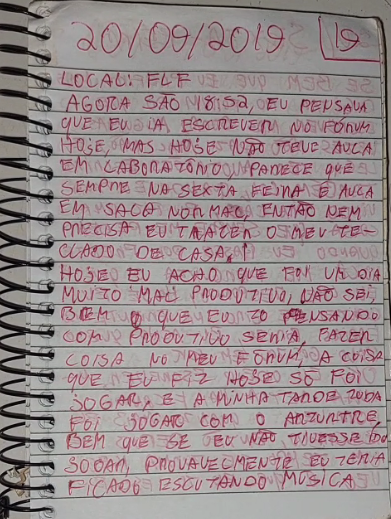 20/09/2019 19
LOCAL: FLF
AGORA SÃO 18:52, EU PENSAVA
QUE EU IA ESCREVER NO FÓRUM
HOJE, MAS HOJE NÃO TEVE AULA
EM LABORATÓRIO, PARECE QUE
SEMPRE NA SEXTA FEIRA É AULA
EM SALA NORMAL, ENTÃO NEM
PRECISA EU TRAZER O MEU TE-
CLADO DE CASA.
HOJE EU ACHO QUE FOI UM DIA
MUITO MAL PRODUTIVO, NÃO SEI,
BEM O QUE EU TO PENSANDO
COMO PRODUTIVO SERIA, FAZER
COISA NO MEU FÓRUM, A COISA
QUE EU FIZ HOJE SÓ FOI
JOGAR, E A MINHA TARDE TODA
FOI JOGAR COM O
BEM QUE SE EU NÃO TIVESSE IDO
JOGAR, PROVAVELMENTE EU TERIA
FICADO ESCUTANDO MÚSICA